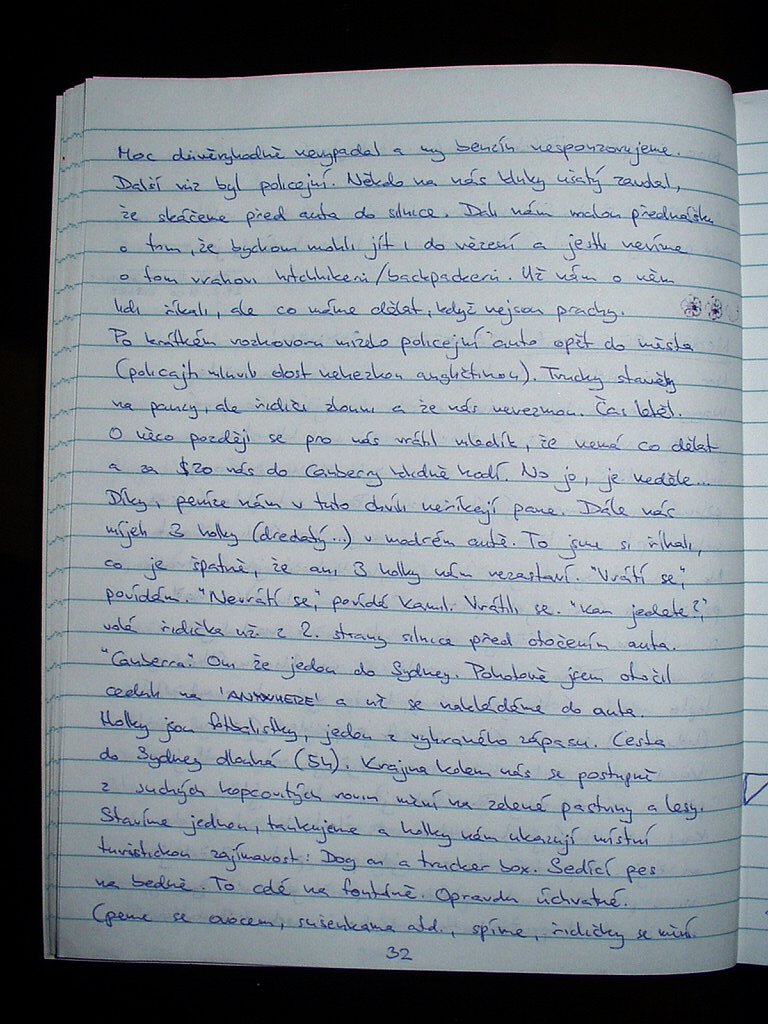 Moc důvěryhodně nevypadal a my benzín nesponzorujeme.
Další vůz byl policejní. Někdo na nás kluky ušatý žaloval,
že skáčeme před auta do silnice. Dali nám malou přednášku
o tom, že bychom mohli jít i do vězení a jestli nevíme
o tom vrahovi hitchhikerů/backpackerů. Už nám o něm
lidi říkali, ale co máme dělat, když nejsou prachy.
Po krátkém rozhovoru mizelo policejní auto opět do města
(policajti mluvili dost nehezkou angličtinou). Trucky stavěly
na pauzy, ale řidiči že nás nevezmou. Čas letěl.
O něco později se pro nás vrátil mladík, že nemá co dělat
a za $20 nás do Canberry klidně hodí. No jo, je neděle...
Díky, peníze nám v tuto chvíli neříkají pane. Dále nás
míjely 3 holky (dredatý...) v modrém autě. To jsme si říkali,
co je špatně, že ani 3 holky nám nezastaví. "Vrátí se",
povídám. "Nevrátí se", povídá Kamil. Vrátili se. "Kam jedete?",
volá řidička už z 2. strany silnice před otočením auta.
"Canberra". Oni že jedou do Sydney. Pohotově jsem otočil
ceduli na 'ANYWHERE' a už se nakládáme do auta.
Holky jsou fotbalistky, jedou z vyhraného zápasu. Cesta
do Sydney dlouhá (5h). Krajina kolem nás se postupně
z suchých kopcovitých rovin mění na zelené pastviny a lesy.
Stavíme jednou, tankujeme a holky nám ukazují místní
turistickou zajímavost: Dog on a trucker box. Sedící pes
na bedně. To celé na fontáně. Opravdu úchvatné.
Cpeme se ovocem, sušenkama atd., spíme, řidičky se mění.
32